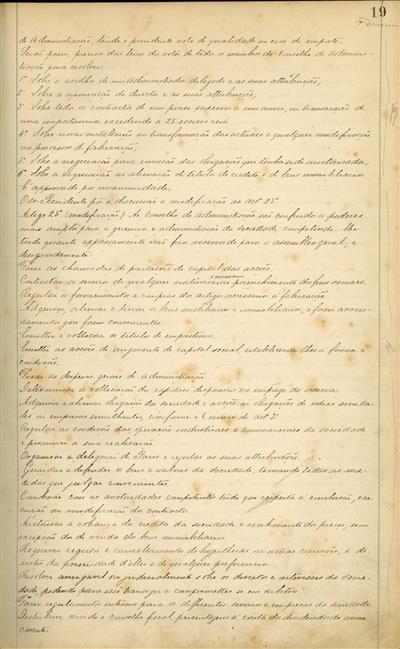 19
de Administração, tendo o presidente voto de qualidade no caso de empate.
Serão porem precisos dos votos de todos os membros do Conselho de Adminis-
tração para resolver:
1º Sobre a escolha de um Administrador delegado e as suas attribuições,
2º Sobre a nomeação do director e as suas attribuições,
3º Sobre todos os contractos de um praso superior a um anno, ou transacção de
uma importancia excedendo a 25 contos de reis
4º Sobre novas installações ou transformação das actuaes e qualquer modificação
no processo de fabricação,
5º Sobre a negociação para emissão das obrigações que tenha sido auctorisada,
6º Sobre a acquisição ou alienação de titulos de credito e de bens immobiliarios
É approvado por unanimidade.
O Snr Presidente põe á discussão a modificação ao artº 25º
Artigo 25º (modificação) Ao Conselho de Administração são conferidos os poderes
mais amplos para a gerencia e administração da sociedade, competindo-lhe
tudo quanto expressamente não fôra reservado para a assemblea geral, e
designadamente:
Fazer as chamadas de prestações de capital das acções
Contractar os serviços de qualquer natureza necessarios ao preenchimento dos fins sociaes.
Regular o fornecimento e compra dos artigos necessarios á fabricação
Adquirir, alienar e trocar os bens mobiliarios e immobiliarios, e fazer arren-
damentos que forem convenientes
Emittir e collocar os titulos de emprestimo,
Emittir as acções do augmento de capital social, estabelecendo-lhes a forma e
condições.
Fixar as despezas geraes de administração
Determinar a collocação dos capitaes disponiveis e o emprego da reserva
Adquirir e alienar obrigações da sociedade e acções ou obrigações de outras socieda-
des ou emprezas similhantes, conforme o § unico do artº 3º
Regular as condições das operações industriaes e commerciaes da sociedade
e promover a sua realisação.
Organisar a delegação de Paris e regular as suas attribuições.
Guardar e defender os bens e valores da sociedade, tomando todas as me-
didas que julgar convenientes.
Combinar com as auctoridades competentes tudo que respeita á conclusão, exe-
cução ou modificação dos contractos
Auctorisar a cobrança dos creditos da sociedade e recebimento dos preços, sem
excepção do de venda dos bens immobiliarios
Requerer registo e cancellamento de hypothecas ou outras cauções, e de-
sistir da prioridade d'elles e de qualquer preferencia.
Resolver amigavel ou judicialmente sobre os direitos e interesses da socie-
dade, podendo para isso transigir e comprometter-se em arbitros.
Fazer regulamentos internos para os differentes serviços e emprezas da sociedade
Distribuir, ouvido o conselho fiscal percentagens á conta do dividendo do anno
corrente.